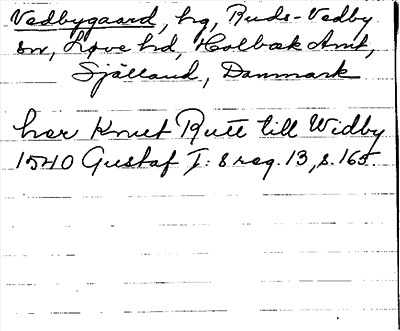 Vedbygaard, hg, Ruds-Vedby
sn, Løve hd, Holbæk Amt,
Sjålland, Danmark
har Knut Rutt till Widby
1540 Gustaf I: s reg. 13, s. 165